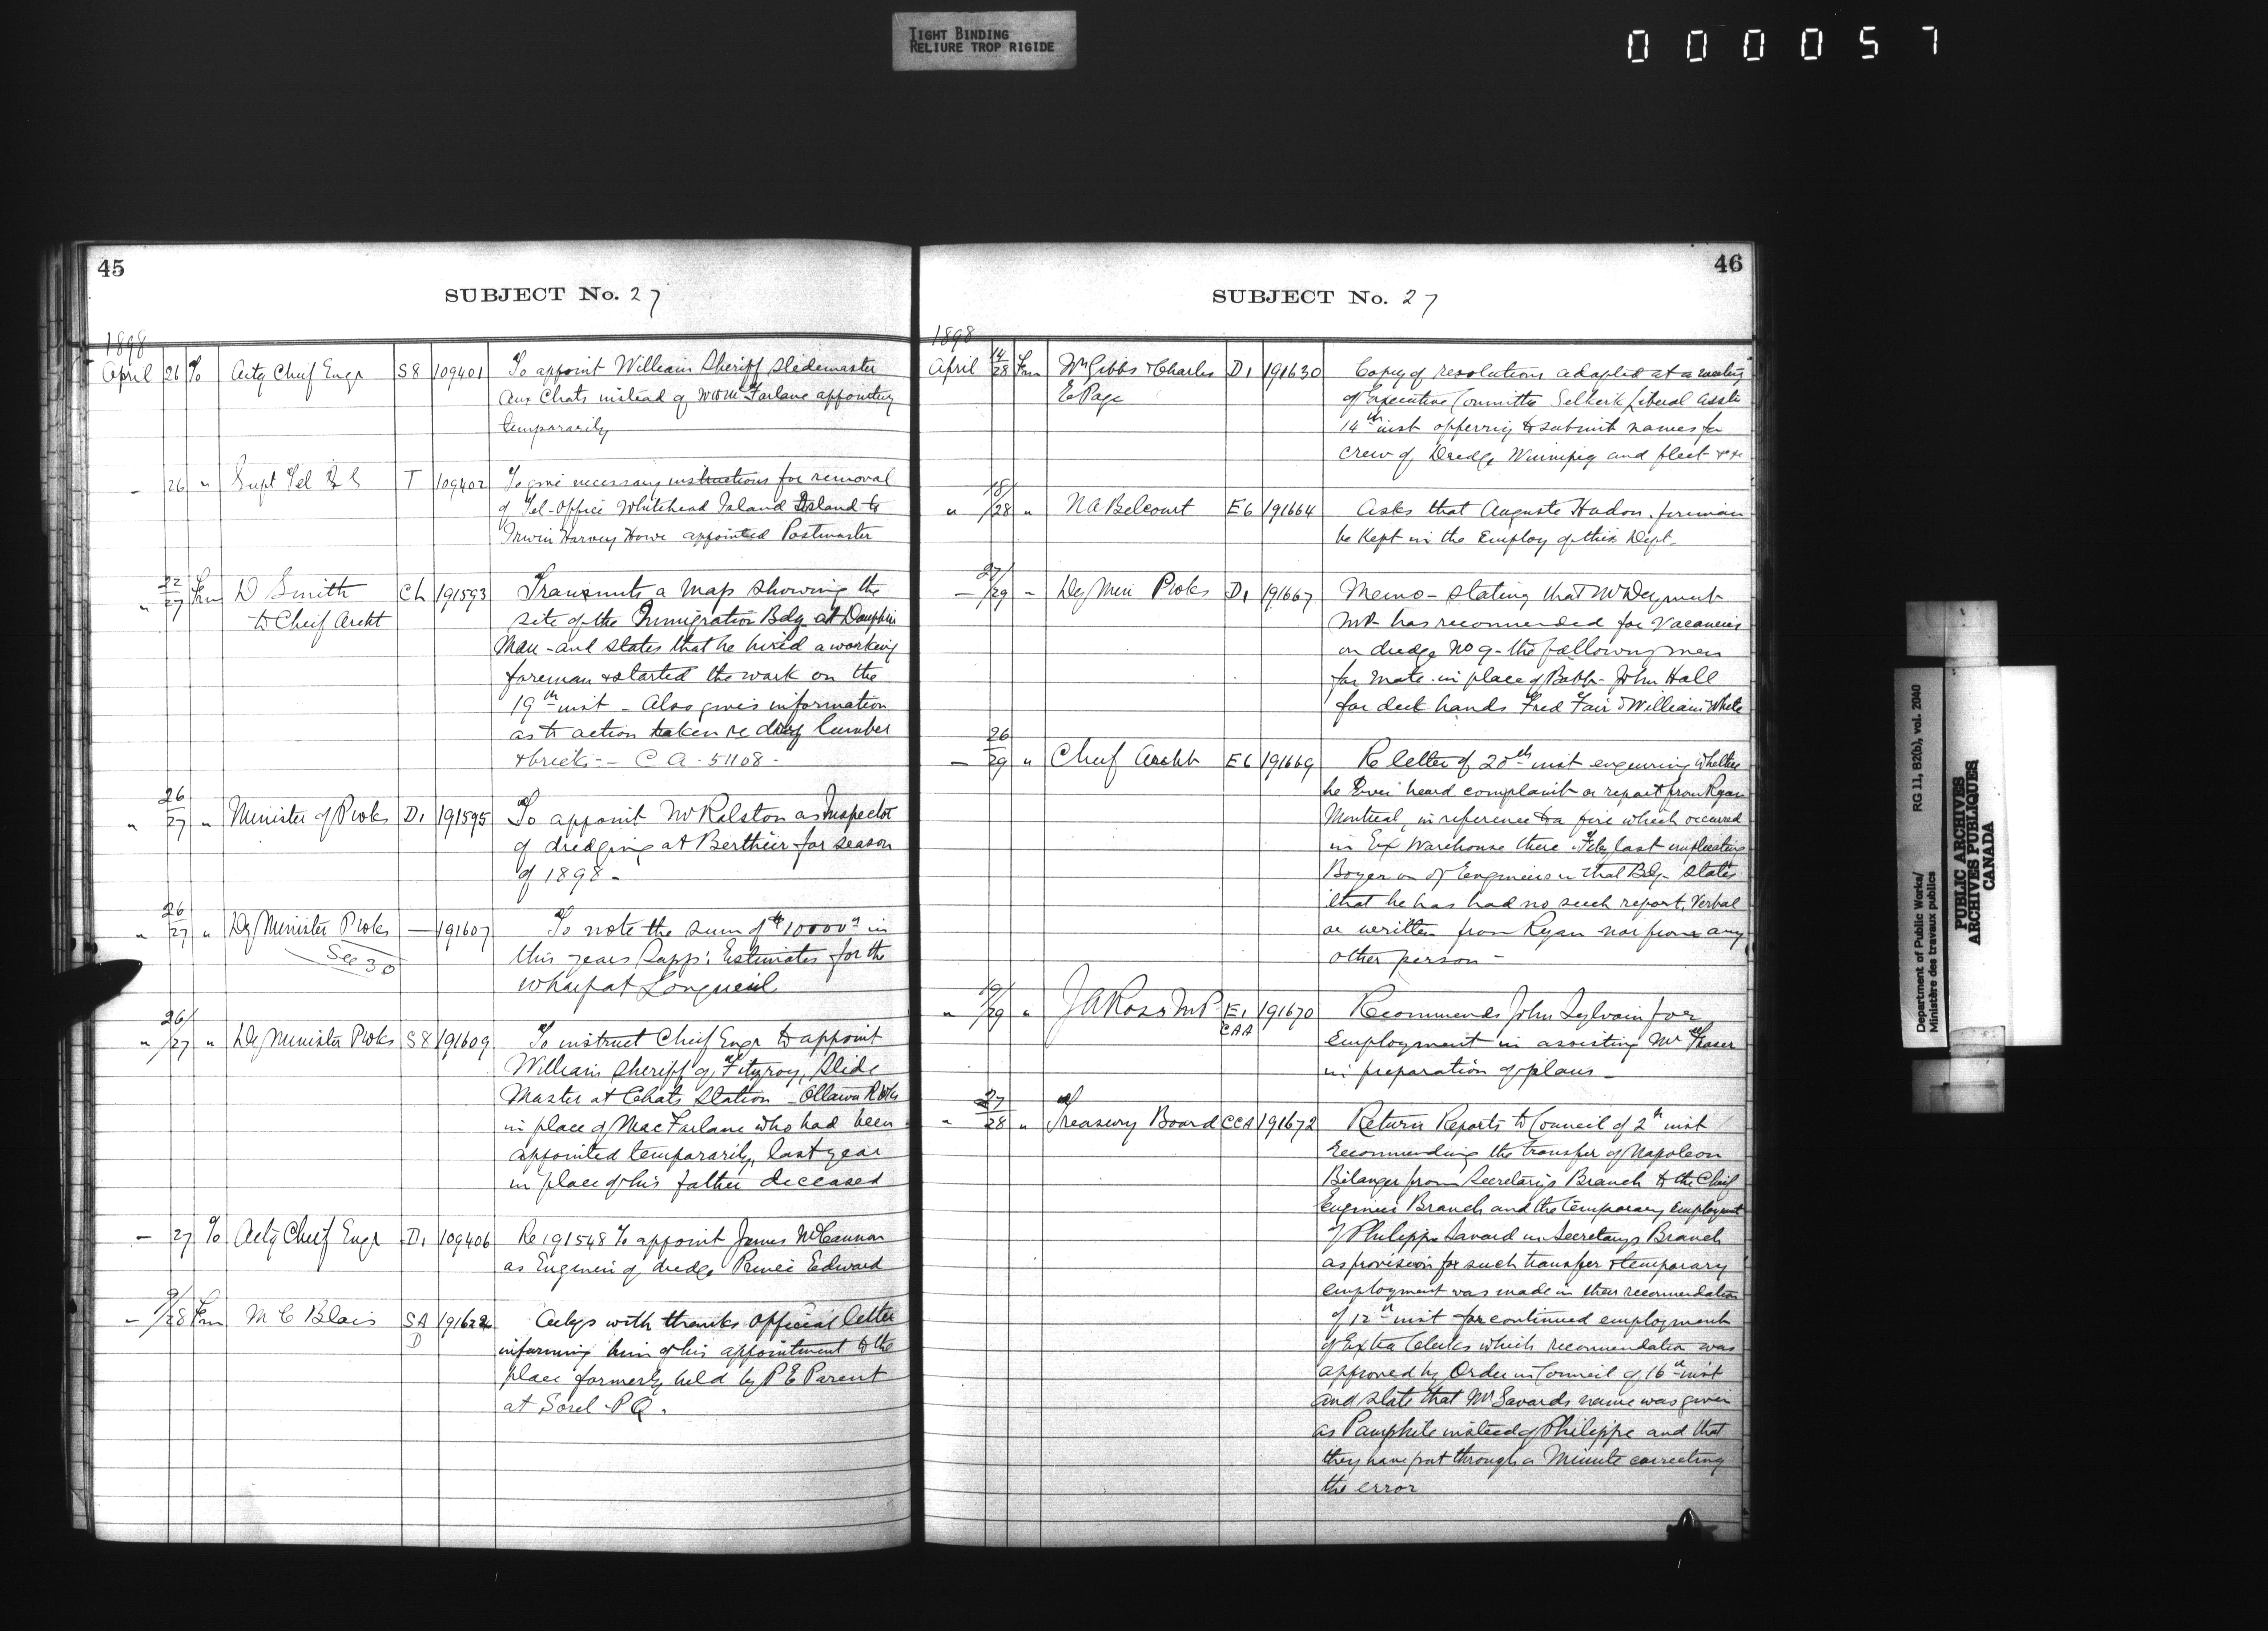 TIGHT BINDING
RELIURE TROP RIGIDE
000057
45
SUBJECT No. 27
1898
April 26 To Actg Chief Engr S8 109401 To appoint William Sheriff Slidemaster
aux Chats instead of McFarlane appointed
temporarily
- 26 " Supt Tel T 109402 To give necessary instructions for removal
of Tel-Office Whitehead Island Island to
Irwin Harvey Howe appointed Postmaster
" 22/27 Frm D Smith Ch 191593 Transmits a map showing the
to Chief Archt site of the Immigration Bdg at Dauphin
Man - and states that he hired a working
foreman & started the work on the
19th inst - Also gives information
as to action taken re lumber
& bricks - - C A - 51108 -
" 26/27 " Minister of P Wks D1 191595 To appoint Mr Ralston as Inspector
of dredging at Berthier for season
of 1898 -
" 26/27 " Dy Minister P Wks — 191607 To note the sum of $10000 in
See 30 this years Supp: Estimates for the
wharf at Longueuil
" 26/27 " Dy Minister P Wks S8 191609 To instruct Chief Engr to appoint
William Sheriff of Fitzroy, Slide
Master at Chats Station - Ottawa R Wks
in place of MacFarlane who had been
appointed temporarily, last year
in place of his father deceased
- 27 To Actg Chief Engr D1 109406 Re 191548 To appoint James McCannan
as Engineer of dredge Prince Edward
- 9/28 Frm M C Blais SA 191622 Ackgs with thanks official letter
D informing him of his appointment to the
place formerly held by P E Parent
at Sorel - P Q.
46
SUBJECT No. 27
1898
April 14/28 Frm Wm Gibbs & Charles D1 191630 Copy of resolutions adopted at a meeting
E Page of Executive Committee Selkirk Liberal Assn
14th inst offering to submit names for
crew of Dredge Winnipeg and fleet &c
" 18/28 " N A Belcourt E6 191664 Asks that Auguste Hudon foreman
be kept in the employ of this Dept -
- 27/29 - Dy Min P Wks D1 191667 Memo - stating that Mr Deyment
MP has recommended for Vacancies
on dredge No 9 - the following men
for Mate in place of - John Hall
for deck hands Fred Fair & William White
- 26/29 " Chief Archt E6 191669 Re letter of 20th inst enquiring whether
he ever heard complaint or report from Ryan
Montreal, in reference to a fire which occurred
in Ex Warehouse there Feby last implicating
Boyer one of Engineers in that Bdg - States
that he has had no such report, Verbal
or written from Ryan nor from any
other person -
" 19/29 " J A Ross MP E1 191670 Recommends John Sylvain for
CAA employment in assisting Mr Fraser
in preparation of plans -
" 27/28 " Treasury Board CCA 191672 Return Reports to Council of 2nd inst
recommending the transfer of Napoleon
Bélanger from Secretary's Branch to the Chief
Engineers Branch and the temporary employment
of Philippe Savard in Secretarys Branch
as provision for such transfer & temporary
employment was made in their recommendation
of 12th inst for continued employment
of Extra Clerks which recommendation was
approved by Order in Council of 16th inst
and state that Mr Savards name was given
as Pamphile instead of Philippe and that
they have put through a Minute correcting
the error
Department of Public Works/ RG 11, B2(b), vol. 2040
Ministère des travaux publics
PUBLIC ARCHIVES
ARCHIVES PUBLIQUES
CANADA